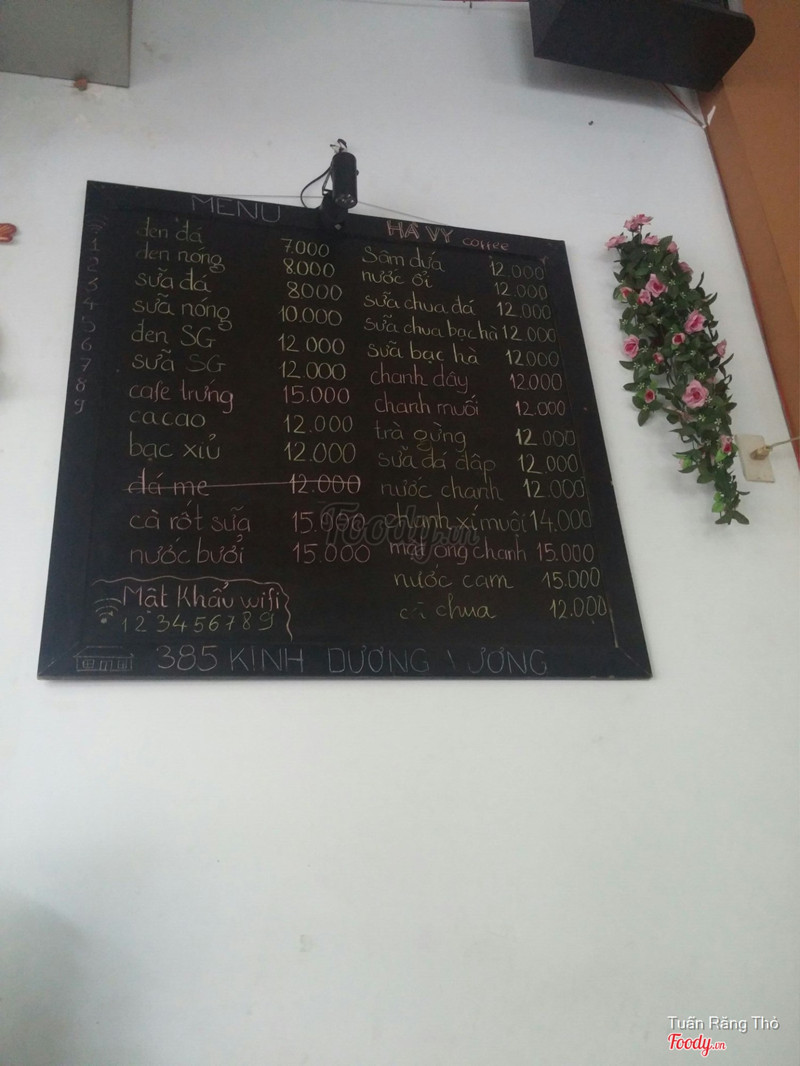 MENU
HÀ VY coffee
đen đá 7.000
đen nóng 8.000
sữa đá 8.000
sữa nóng 10.000
đen SG 12.000
sữa SG 12.000
cafe trứng 15.000
cacao 12.000
bạc xỉu 12.000
đá me 12.000
cà rốt sữa 15.000
nước bưởi 15.000
Mật Khẩu wifi
123456789
sâm dứa 12.000
nước ổi 12.000
sữa chua đá 12.000
sữa chua bạc hà 12.000
sữa bạc hà 12.000
chanh dây 12.000
chanh muối 12.000
trà gừng 12.000
sữa đá đập 12.000
nước chanh 12.000
chanh xí muội 14.000
mật ong chanh 15.000
nước cam 15.000
cà chua 12.000
1
2
3
4
5
6
7
8
9
385 KINH DƯƠNG VƯƠNG
Foody.vn
Tuấn Răng Thỏ
Foody.vn